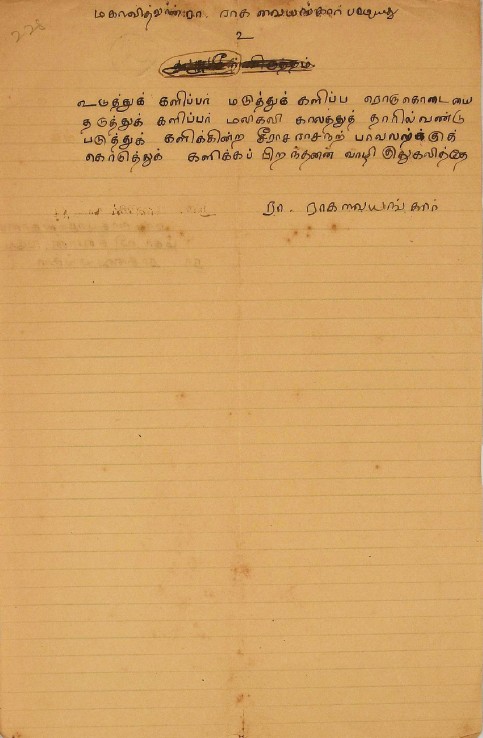 228
மகாவித்வான் ரா. ராகவையங்கார் பாடியது
உடுத்துக் களிப்பர் மடுத்துக் களிப்ப
தடுத்துக் களிப்பர் மலிகலி காலத்துத் நாரில்வண்டு
படுத்துக் களிக்கின்ற சீராசராசநற் பாவலலர்க்குக்
கொடுத்துக் களிக்கப் பிறந்தனன் வாடி இதுகலித்தே
ரா. ராகவையங்கார்